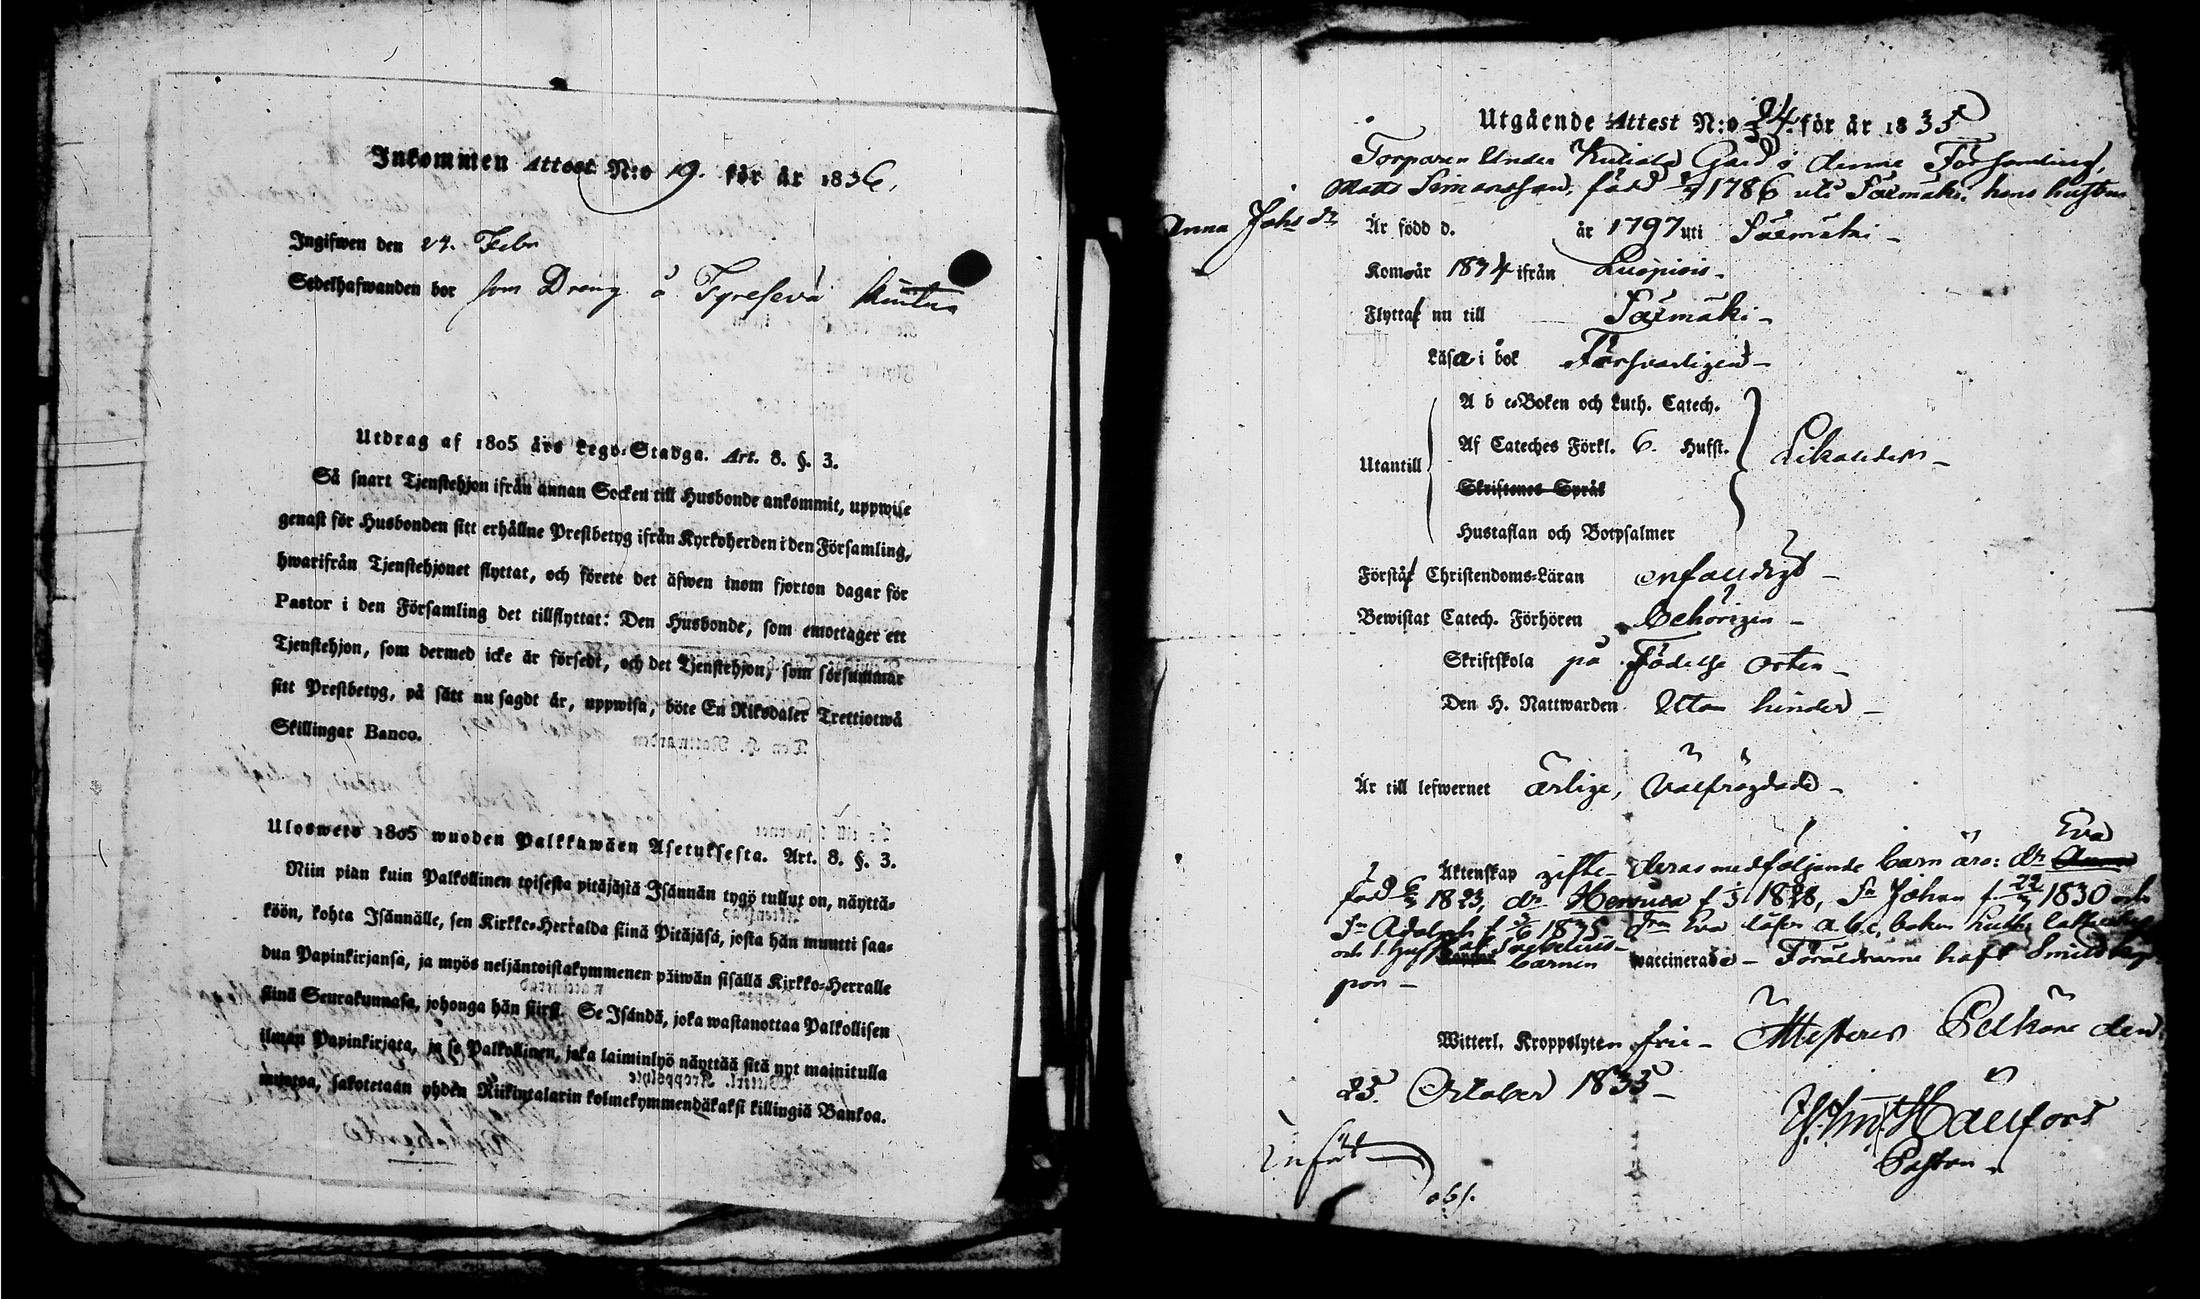 Inkommen Attest N:o 19. för år 1836.
Ingifwen den 24. Febr
Sedelhafwanden bor som Dreng å Tyrefevä
Utdrag af 1805 års Lego-Stadga. Art. 8. §. 3.
Så snart Tjenstehjon ifrån annan Socken till Husbonde ankommit, uppwise
genast för Husbonden sitt erhållne Prestbetyg ifrån Kyrkoherden i den Församling,
hwarifrån Tjenstehjonet flyttat, och förete det äfwen inom fjorton dagar för
Pastor i den Församling det tillflyttat: Den Husbonde, som emottager ett
Tjenstehjon, som dermed icke är försedt, och det Tjenstehjon, som försummar
sitt Prestbetyg, på sätt nu sagdt är, uppwisa, böte En Riksdaler Trettiotwå
Skillingar Banco.
Ulosweto 1805 wuoden Palkkawäen Asetuksesta. Art. 8. §. 3.
Niin pian kuin Palkollinen toisesta pitäjästä Isännän tygö tullut on, näyttä-
köön, kohta Isännälle, sen Kirkko-Herralda siinä Pitäjäsä, josta hän muutti saa-
dun Papinkirjansa, ja myös neljäntoistakymmenen päiwän sisällä Kirkko-Herralle
siinä Seurakunnasa, johonga hän siirsi. Se Isändä, joka wastanottaa Palkollisen
ilman Papinkirjata, ja se Palkollinen, joka laiminlyö näyttää sitä nyt mainitulla
muotoa, sakotetaan yhden Riikintalarin kolmekymmendäkaksi killingiä Bankoa.
Utgående Attest N:o 24. för år 1835
Torparen under Gård i denne Församling,
Matts Simonsson, född 1786 uti Säxmäki. hans hustru
Anna Johs dr Är född d. år 1797 uti Säxmäki -
Kom år 1834 ifrån Luopiois -
Flytta nu till Säxmäki -
Läsa i bok Försvarligen -
A b c-Boken och Luth. Catech.
Utantill Af Cateches Förkl. 6. Hufst. Likaledes -
Skriftenes Språk
Hustaflan och Botpsalmer
Förstå Christendoms-Läran enfaldigt -
Bewistat Catech. Förhören behörigen -
Skriftskola på Födelse orten -
Den H. Nattwarden Utan hinder -
Är till lefwernet ärlige, välfrägdade -
Eva
Äktenskap gifte - deras medföljande barn äro: dr Anna
född 1823, dr f 1828, Sn Johan f. 22 1830 och
Sn Adolph f 1835 Eva läser a.b.c. boken
och 1. barnen waccinerade - Föräldrarne haft Smittkop-
por -
Witterl. Kroppslyten frie - Attesteras Pelkäne den
25. October 1835 -
Hällfors
Pastor -
Införd
obs.